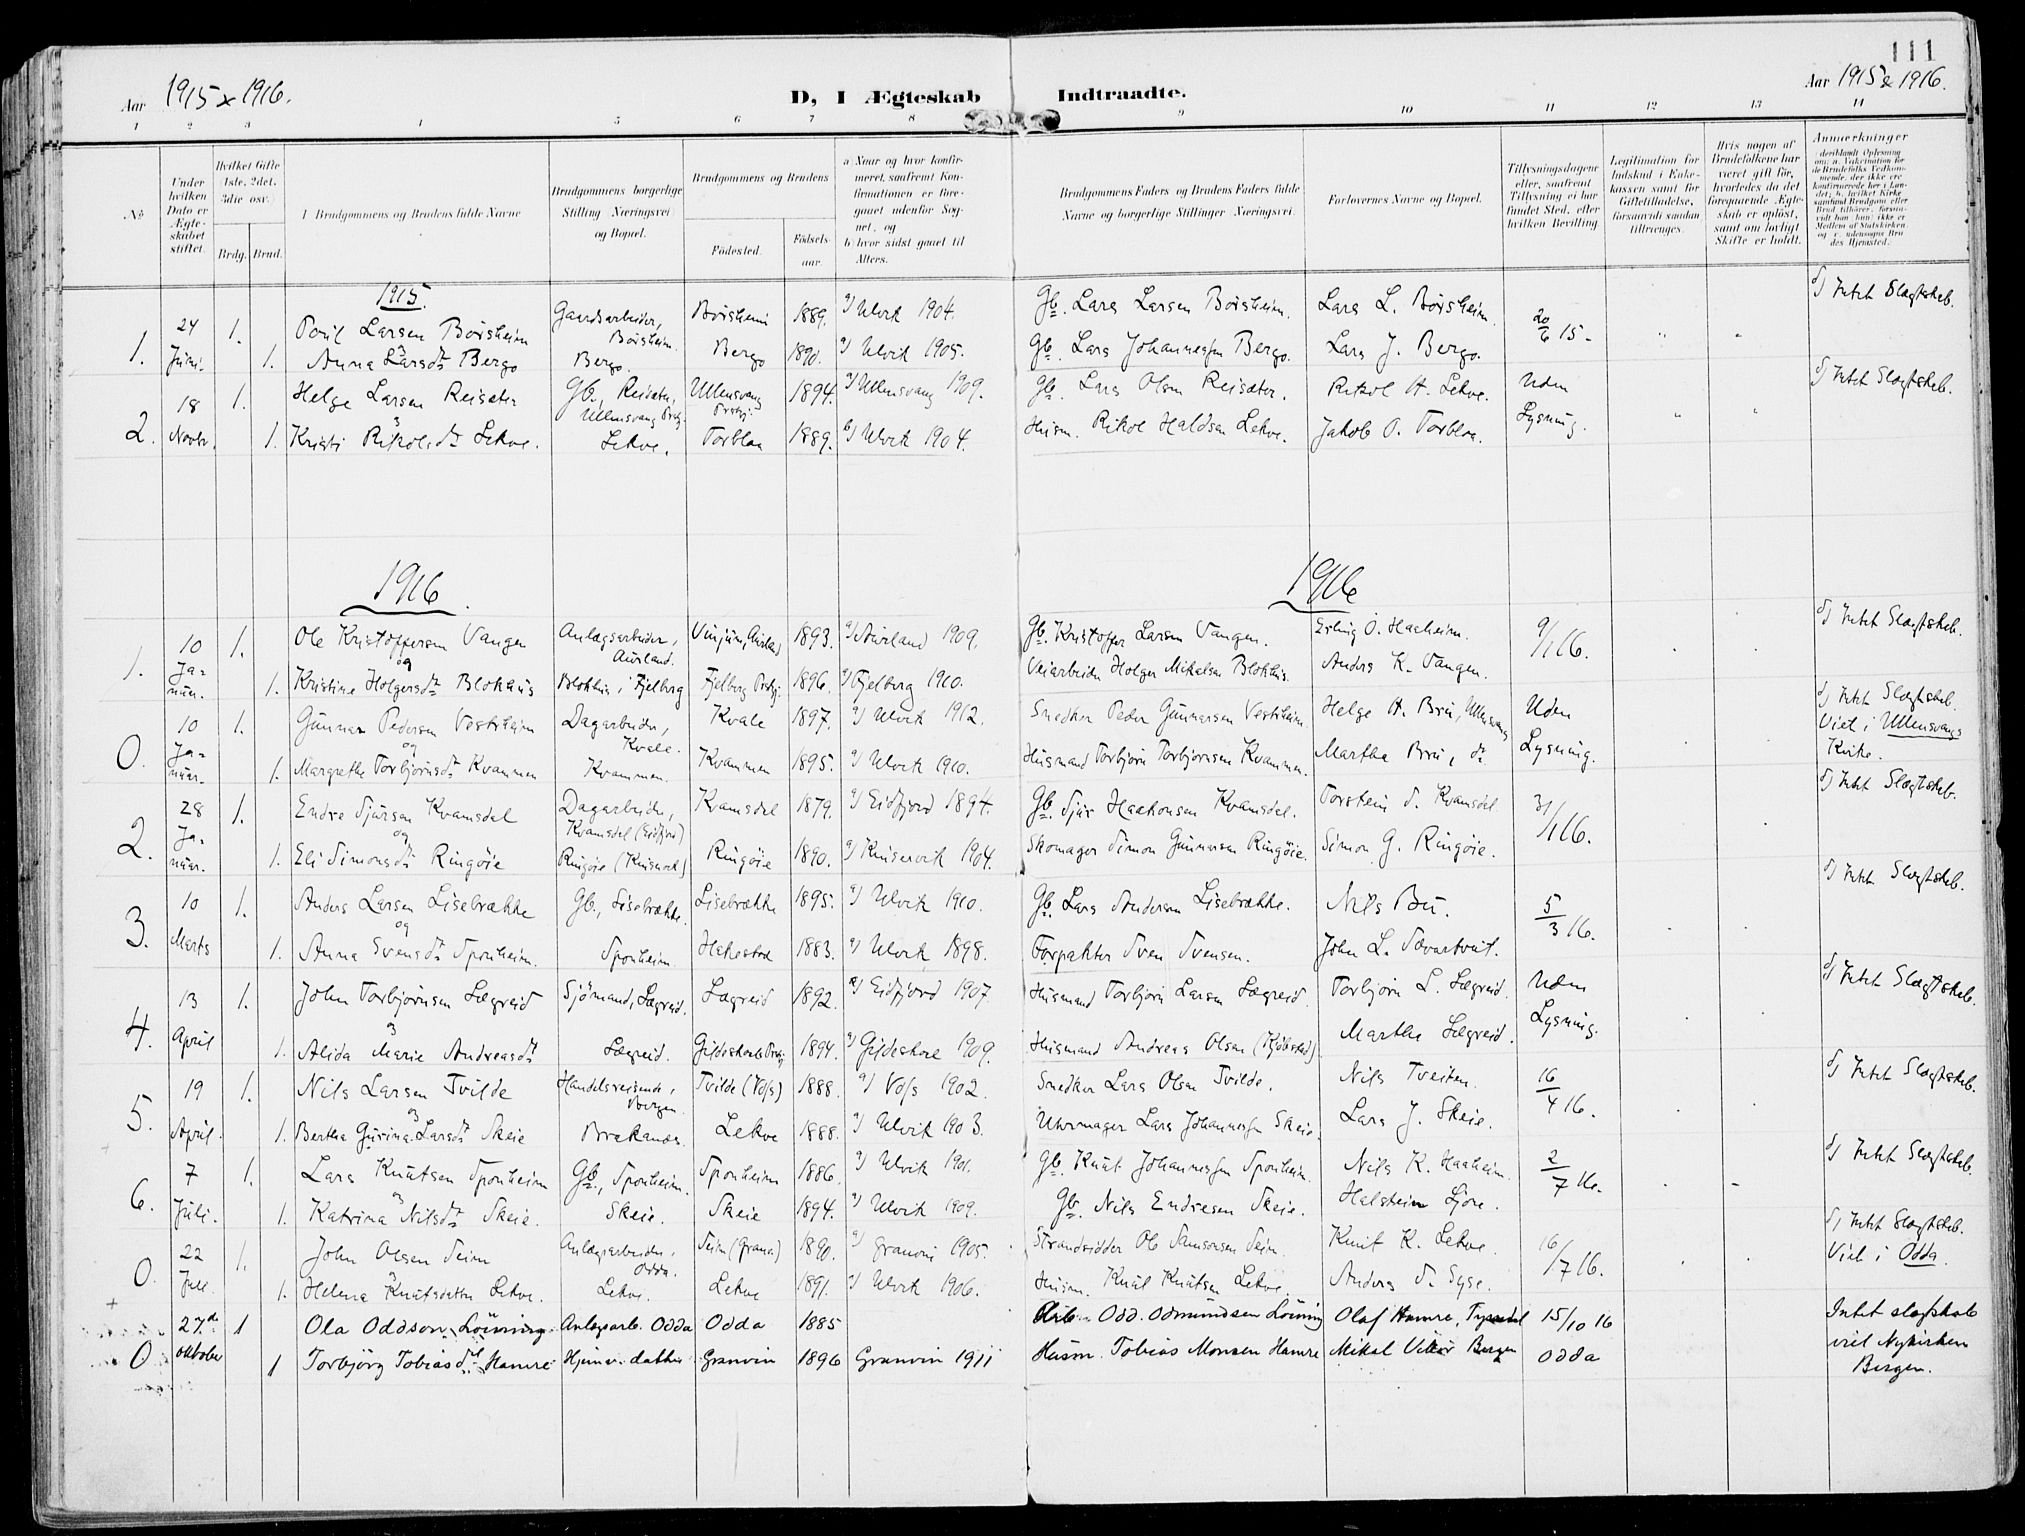 111
Aar 1915 & 1916.
D, I Ægteskab Indtraadte.
Aar 1915 & 1916.
1 2 3 4 5 6 7 8 9 10 11 12 13 14
No
Under hvilken Dato er Ægteskabet stiftet.
Hvilket Gifte (1ste, 2det, 3die osv.)
Brdg. Brud.
Brudgommens og Brudens fulde Navne
Brudgommens borgerlige Stilling (Næringsvei) og Bopæl.
Brudgommens og Brudens
Fødested.
Fødselsaar.
a) Naar og hvor konfirmeret, saafremt Konfirmationen er foregaaet udenfor Sognet, og
b) hvor sidst gaaet til Alters.
Brudgommens Faders og Brudens Faders fulde Navne og borgerlige Stillinger (Næringsvei).
Forlovernes Navne og Bopæl.
Tillysningsdagene eller, saafremt Tillysning ei har fundet Sted, efter hvilken Bevilling
Legitimation for Indskud i Enkekassen samt for Giftetilladelse, forsaavidt saadan tiltrænges.
Hvis nogen af Brudefolkene har været gift før, hvorledes da det foregaaende Ægteskab er opløst, samt om lovligt Skifte er holdt.
Anmærkninger
1915.
1. 24 Juni. 1. Poul Larsen Børsheim Gaardsarbeider, Børsheim. Børsheim 1889. a) Ulvik 1904. Gb. Lars Larsen Børsheim. Lars L. Børsheim. 20/6 15. d) Intet Slægtskab.
1. Anna Larsdt. Bergo Bergo. Bergo 1890. a) Ulvik 1905. Gb. Lars Johannessen Bergo. Lars J. Bergo.
2. 18 Novbr. 1. Helge Larsen Reisæter Gb., Reisæter, Ullensvang Prstgj. Ullensvang Prstgj. 1894. a) Ullensvang 1909. Gb. Lars Olsen Reisæter. Rikol H. Lekve. Uden Lysning. d) Intet Slægtskab.
1. Kristi Rikolsdt. Lekve. Lekve. Torblaa 1889. a) Ulvik 1904. Husm. Rikol Haldsen Lekve. Jakob O. Torblaa.
1916. 1916
1. 10 Januar. 1. Ole Kristoffersen Vangen Anlægsarbeider, Aurland. Vinjum, Aurland 1893. a) Aurland 1909. Gb. Kristoffer Larsen Vangen. Erling O. Haaheim. 9/1 16. d) Intet Slægtskab.
og
1. Kristine Holgersdt. Blokhus Blokhus i Fjelberg Fjelberg Prstgj. 1896. a) Fjelberg 1910. Veiarbeider Holger Mikalsen Blokhus. Anders K. Vangen.
0. 10 Januar. 1. Gunnar Pedersen Vestrheim Dagarbeider, Kvale. Kvale 1897. a) Ulvik 1912. Snedker Peder Gunnarsen Vestrheim Helge H. Bru, Ullensvang Uden Lysning. d) Intet Slægtskab. Viet i Ullensvangs Kirke.
og
1. Margrethe Torbjørnsdt. Kvammen Kvammen. Kvammen 1895. a) Ulvik 1910. Husmand Torbjørn Torbjørnsen Kvammen. Martha Bru, dt.
2. 28 Januar. 1. Endre Sjursen Kvamsdal Dagarbeider, Kvamsdal (Eidfjord) Kvamsdal 1879. a) Eidfjord 1894. Gb. Sjur Haakonsen Kvamsdal. Torstein S. Kvamsdal 31/1 16. d) Intet Slægtskab.
og
1. Eli Simonsdt. Ringøie Ringøie (Kinsarvik) Ringøie 1890. a) Kinservik 1904. Skomager Simon Gunnarsen Ringøie. Simon G. Ringøie.
3. 10 Marts 1. Anders Larsen Lisebrække Gb., Lisebrække. Lisebrække 1895. a) Ulvik 1910. Gb. Lars Andersen Lisebrække. Nils Bu. 5/3 16. d) Intet Slægtskab.
og
1. Anna Svensdt. Sponheim. Sponheim. Hakestad 1883. a) Ulvik 1898. Forpakter Sven Svensen. John L. Svartveit.
4. 13 April 1. John Torbjørnsen Lægreid Sjømand, Lægreid. Lægreid 1892. a) Eidfjord 1907. Husmand Torbjørn Larsen Lægreid. Torbjørn L. Lægreid. Uden Lysning. d) Intet Slægtskab.
1. Alida Marie Andreasdt. Lægreid. Gildeskaals Prstgj. 1894. a) Gildeskaal 1909. Husmand Andreas Olsen Martha Lægreid.
5. 19 April. 1. Nils Larsen Tvilde Handelsreisende, Bergen. Tvilde (Voss) 1888. a) Voss 1902. Snedker Lars Olsen Tvilde. Nils Tveiten. 16/4 16. d) Intet Slægtskab.
1. Bertha Gurina Larsdt. Skeie Brakanes. Lekve 1888. a) Ulvik 1903. Uhrmager Lars Johannessen Skeie. Lars J. Skeie.
6. 7 Juli. 1. Lars Knutsen Sponheim Gb., Sponheim. Sponheim 1886. a) Ulvik 1901. Gb. Knut Johannessen Sponheim. Nils K. Haaheim. 2/7 16. d) Intet Slægtskab.
1. Katrina Nilsdt. Skeie. Skeie. Skeie 1894. a) Ulvik 1909. Gb. Nils Endresen Skeie. Halstein Ljone.
0. 22 Juli. 1. John Olsen Seim Anlægsarbeider, Odda. Seim (Granv.) 1890. a) Granvin 1905. Strandsidder Ole Samsonsen Seim. Knut K. Lekve. 16/7 16. d) Intet Slægtskab. Viet i Odda.
1. Helena Knutsdatter Lekve. Lekve. Lekve 1891. a) Ulvik 1906. Husm. Knut Knutsen Lekve. Anders S. Syse.
0 27. Oktober 1 Ola Oddson Løining Anlægsarb. Odda Odda 1885 Odd Odmundsen Løining Olaf Hamre, Tyssedal 15/10 16 Odda Intet slægtskab viet Nykirken Bergen.
1 Torbjörg Tobiasdt. Hamre Hjemv. datter Granvin 1896 Granvin 1911 Husm. Tobias Monsen Hamre Mikal Vikør Bergen